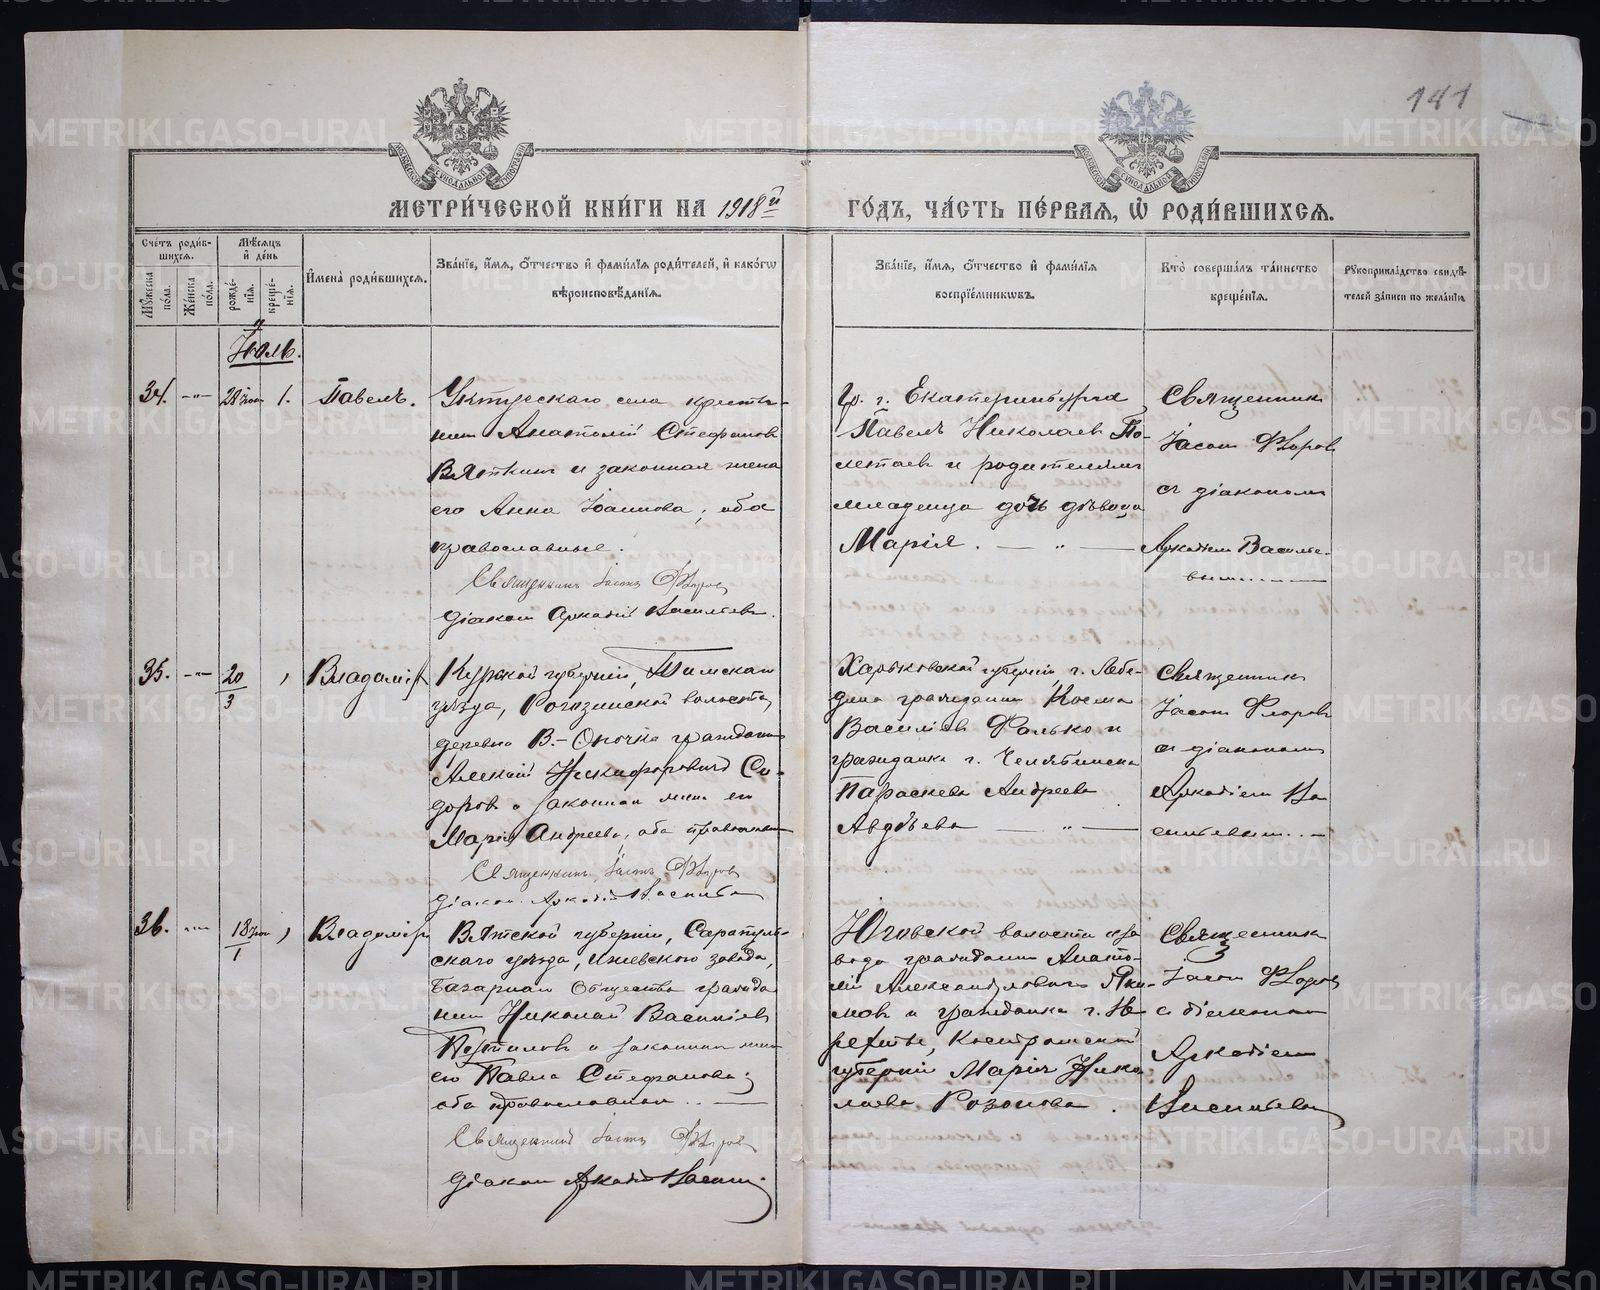 141
МЕТРИ́ЧЕСКОЙ КНИ́ГИ НА 1918й ГО́ДЪ, ЧА́СТЬ ПЕ́РВАЯ, Ѡ҆ РОДИ́ВШИХСЯ.
Сче́тъ роди́вшихся.
Мѹ́жеска по́ла.
Же́нска по́ла.
Мѣ́сяцъ и де́нь
рожде́нія.
креще́нія.
И҆мена̀ роди́вшихся.
Зва́ніе, и҆́мя, ѻ҆́тчество и҆ фами́лія роди́телей, и҆ како́гѡ
вѣроисповѣ́данія.
Зва́ніе, и҆́мя, ѻ҆́тчество и҆ фами́лія
воспріе́мникѡвъ.
Кто̀ соверша́лъ та́инство
креще́нія.
Рѹкоприкла́дство свидѣ́-
телей за́писи по жела́нію.
Іюль.
34. -"- 28 Іюн 1. Павелъ.
Уктусскаго села крестья-
нин Анатолій Стефанов
Вяткин и законная жена
его Анна Іоаннова, оба
православные.
Священникъ Іасонъ Флоров
Діакон Аркадій Васильев.
Гр. г. Екатеринбурга
Павелъ Николаев По-
летаев и родителям
младенца дочь дѣвица
Марія. — " —
Священник
Іасон Флоров
съ діаконом
Аркадіем Василье-
вым
35. -"- 20 3 Владимір
Курской губерніи, Тимскаго
уѣзда, Рогозинской волости,
деревни В.-Опочка гражданин
Алексѣй Никифорович Си-
доров и законная жена его
Марія Андреева, оба православн
Священникъ Іасонъ Флоров
діакон Аркадій Васильев
Харьковской губерніи, г. Лебе-
дина гражданин Косма
Васильев Фалько и
гражданка г. Челябинска
Параскева Андреева
Авдѣева " —
Священник
Іасон Флоров
съ діаконом
Аркадіем Ва
сильевым
36. -"- 18 Іюн 1 Владимір
Вятской губерніи, Сарапуль-
скаго уѣзда, Ижевскаго завода,
Базарнаго Общества гражда
нин Николай Васильев
и законная жена
его Павла Стефанова;
оба православные. —
Священникъ Іасонъ Флоров
Діакон Аркадій Васильев.
Юговской волости и за
вода гражданин Анато-
лій Александрович Яки-
мов и гражданка г. Не
рехты, Костромской
губерніи Марія Нико
лаева Розонова.
Священник
Іасон Флоров
с діаконом
Аркадіем
Васильевым
METRIKI.GASO-URAL.RU